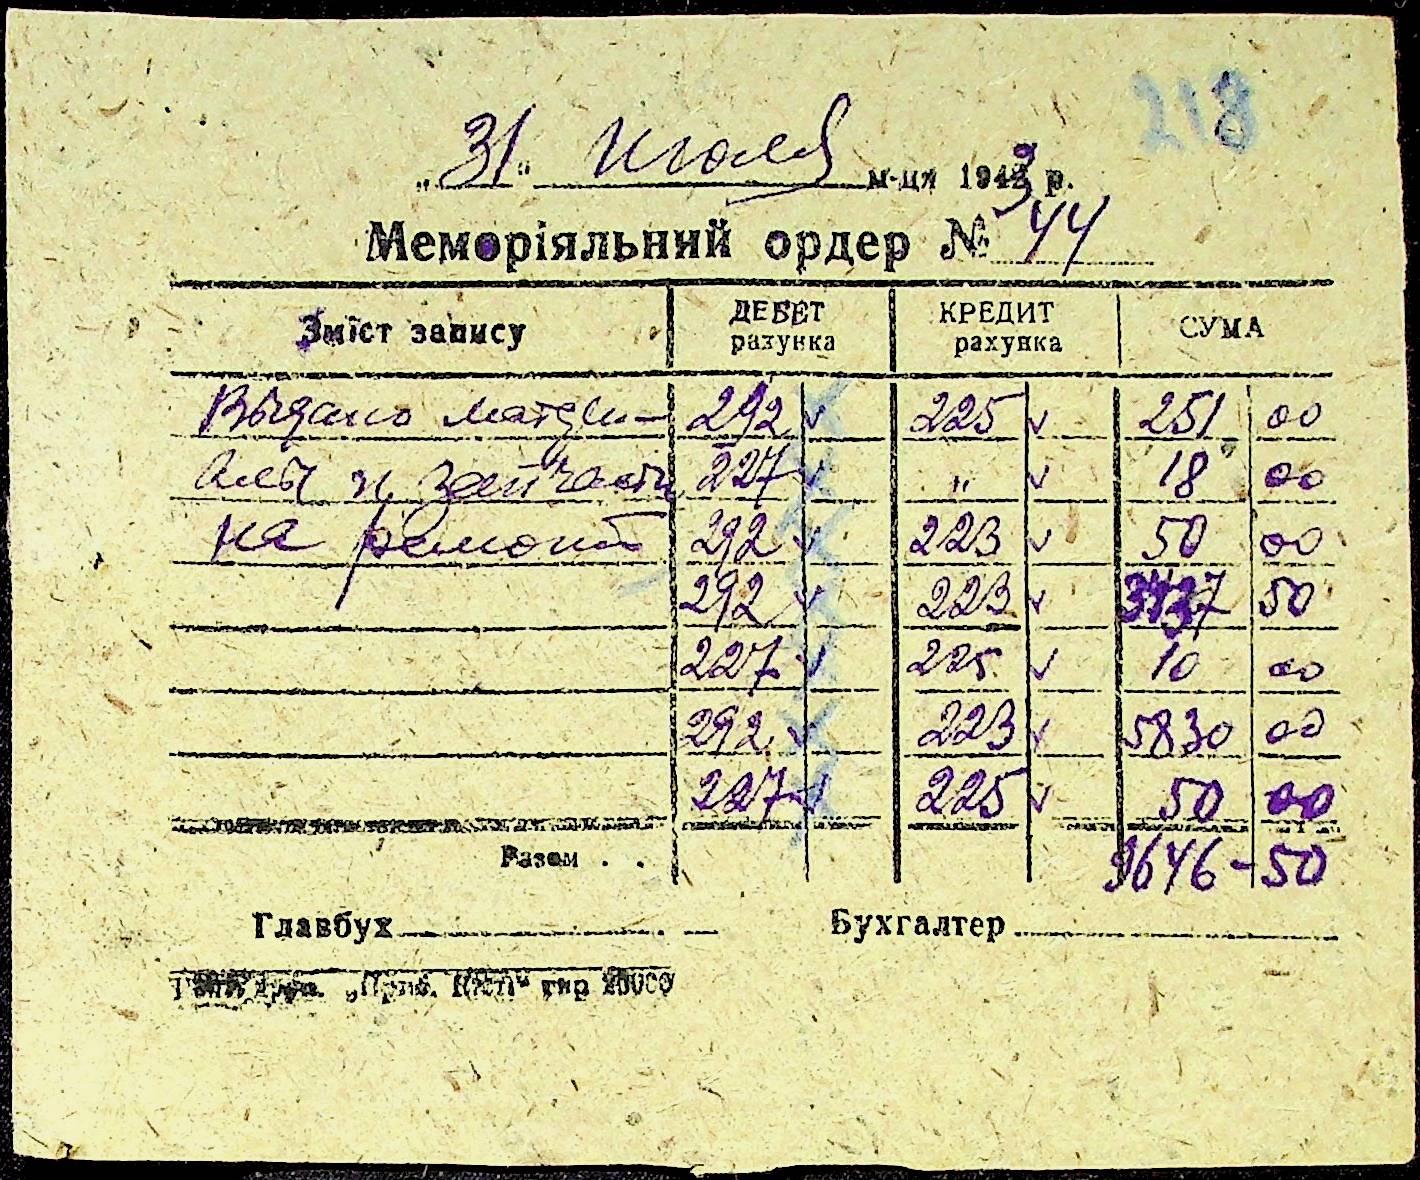 218
„31“ июля м-ця 1943 р.
Меморіяльний ордер № 44
Зміст запису ДЕБЕТ рахунка КРЕДИТ рахунка СУМА
Выдано матери- 292 v 225 v 251 00
алы и запчасти 227 v „ v 18 00
на ремонт 292 v 223 v 50 00
292 v 223 v 3437 50
227 v 225 v 10 00
292 v 223 v 5830 00
227 v 225 v 50 00
Разом . . 9646-50
Главбух Бухгалтер
тир